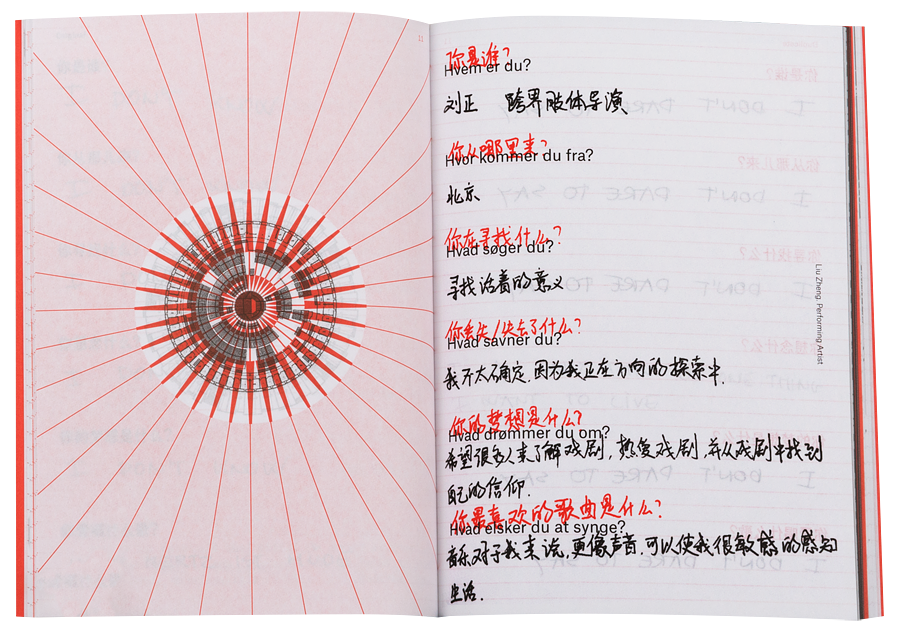 11
你是谁?
Hvem er du?
刘正 跨界肢体导演
你从哪里来?
Hvor kommer du fra?
北京
你在寻找什么?
Hvad søger du?
寻找活着的意义
你丢失/失去了什么?
Hvad savner du?
我不太确定,因为我正在方向的探索中.
你的梦想是什么?
Hvad drømmer du om?
希望很多人来了解戏剧,热爱戏剧,并从戏剧中找到
自己的信仰.
你最喜欢的歌曲是什么?
Hvad elsker du at synge?
音乐对于我来说,更像声音,可以使我很敏感的感知
生活.
Liu Zheng, Performing Artist